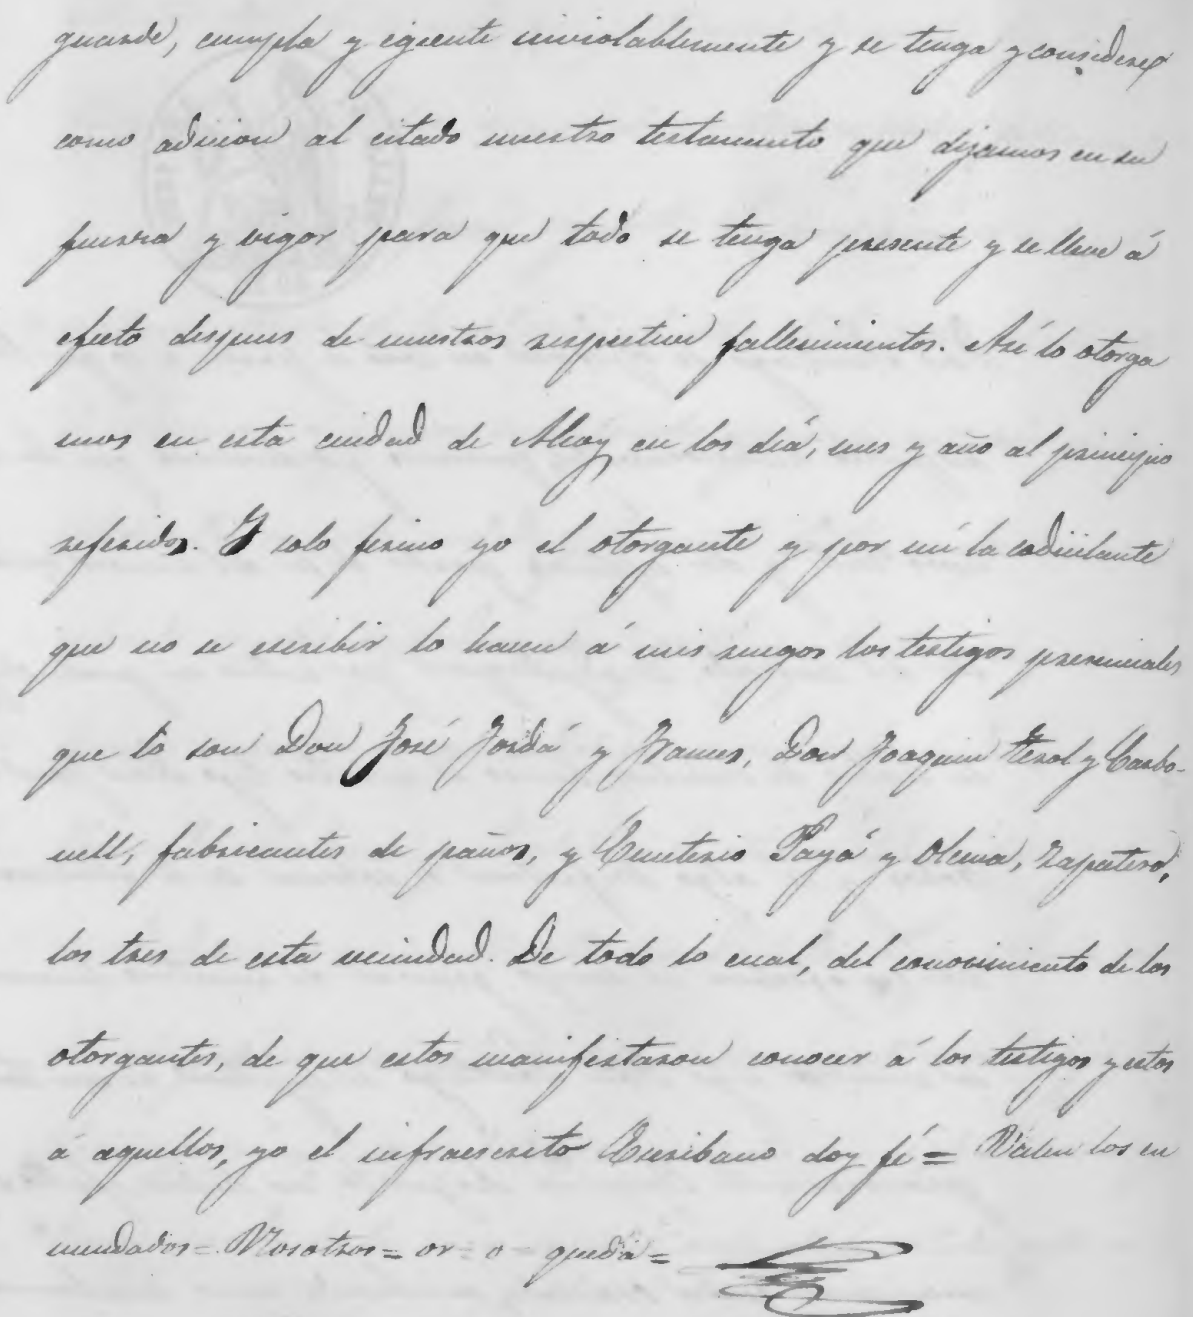 guarde, cumpla y egecute inviolablemente y se tenga y considere
como adicion al citado nuestro testamento que dejamos en su
fuerza y vigor para que todo se tenga presente y se lleve á
efecto despues de nuestros respectivos fallecimientos. Así lo otorga
mos en esta ciudad de Alcoy en los dia, mes y año al principio
referidos. Y solo firmo yo el otorgante y por mi la codicilante
que no se escribir lo hacen á mis ruegos los testigos presenciales
que lo son Don José Jordá y Frances, Don Joaquin Terol y Carbo-
nell, fabricantes de paños, y Emeterio Payá y Olcina, zapatero,
los tres de esta vecindad. De todo lo cual, del conocimiento de los
otorgantes, de que estos manifestaron conocer á los testigos y estos
á aquellos, yo el infraescrito Escribano doy fé = Valen los en
mendados = Nosotros = or = o = queda =